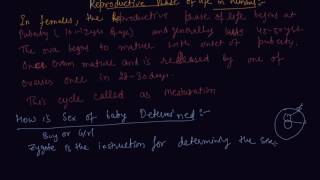 Reproductive Phase of life in human:-
In females, the Reproductive phase of life begins at
Puberty (10-12yrs of age) and generally lasts 45-50yrs.
The ova begins to mature with onset of puberty.
One Ovam mature and is released by one of
ovaries once in 28-30days.
This cycle called as
How is Sex of baby Determined:-
Boy or Girl
Zygote is the instruction for determining the sex